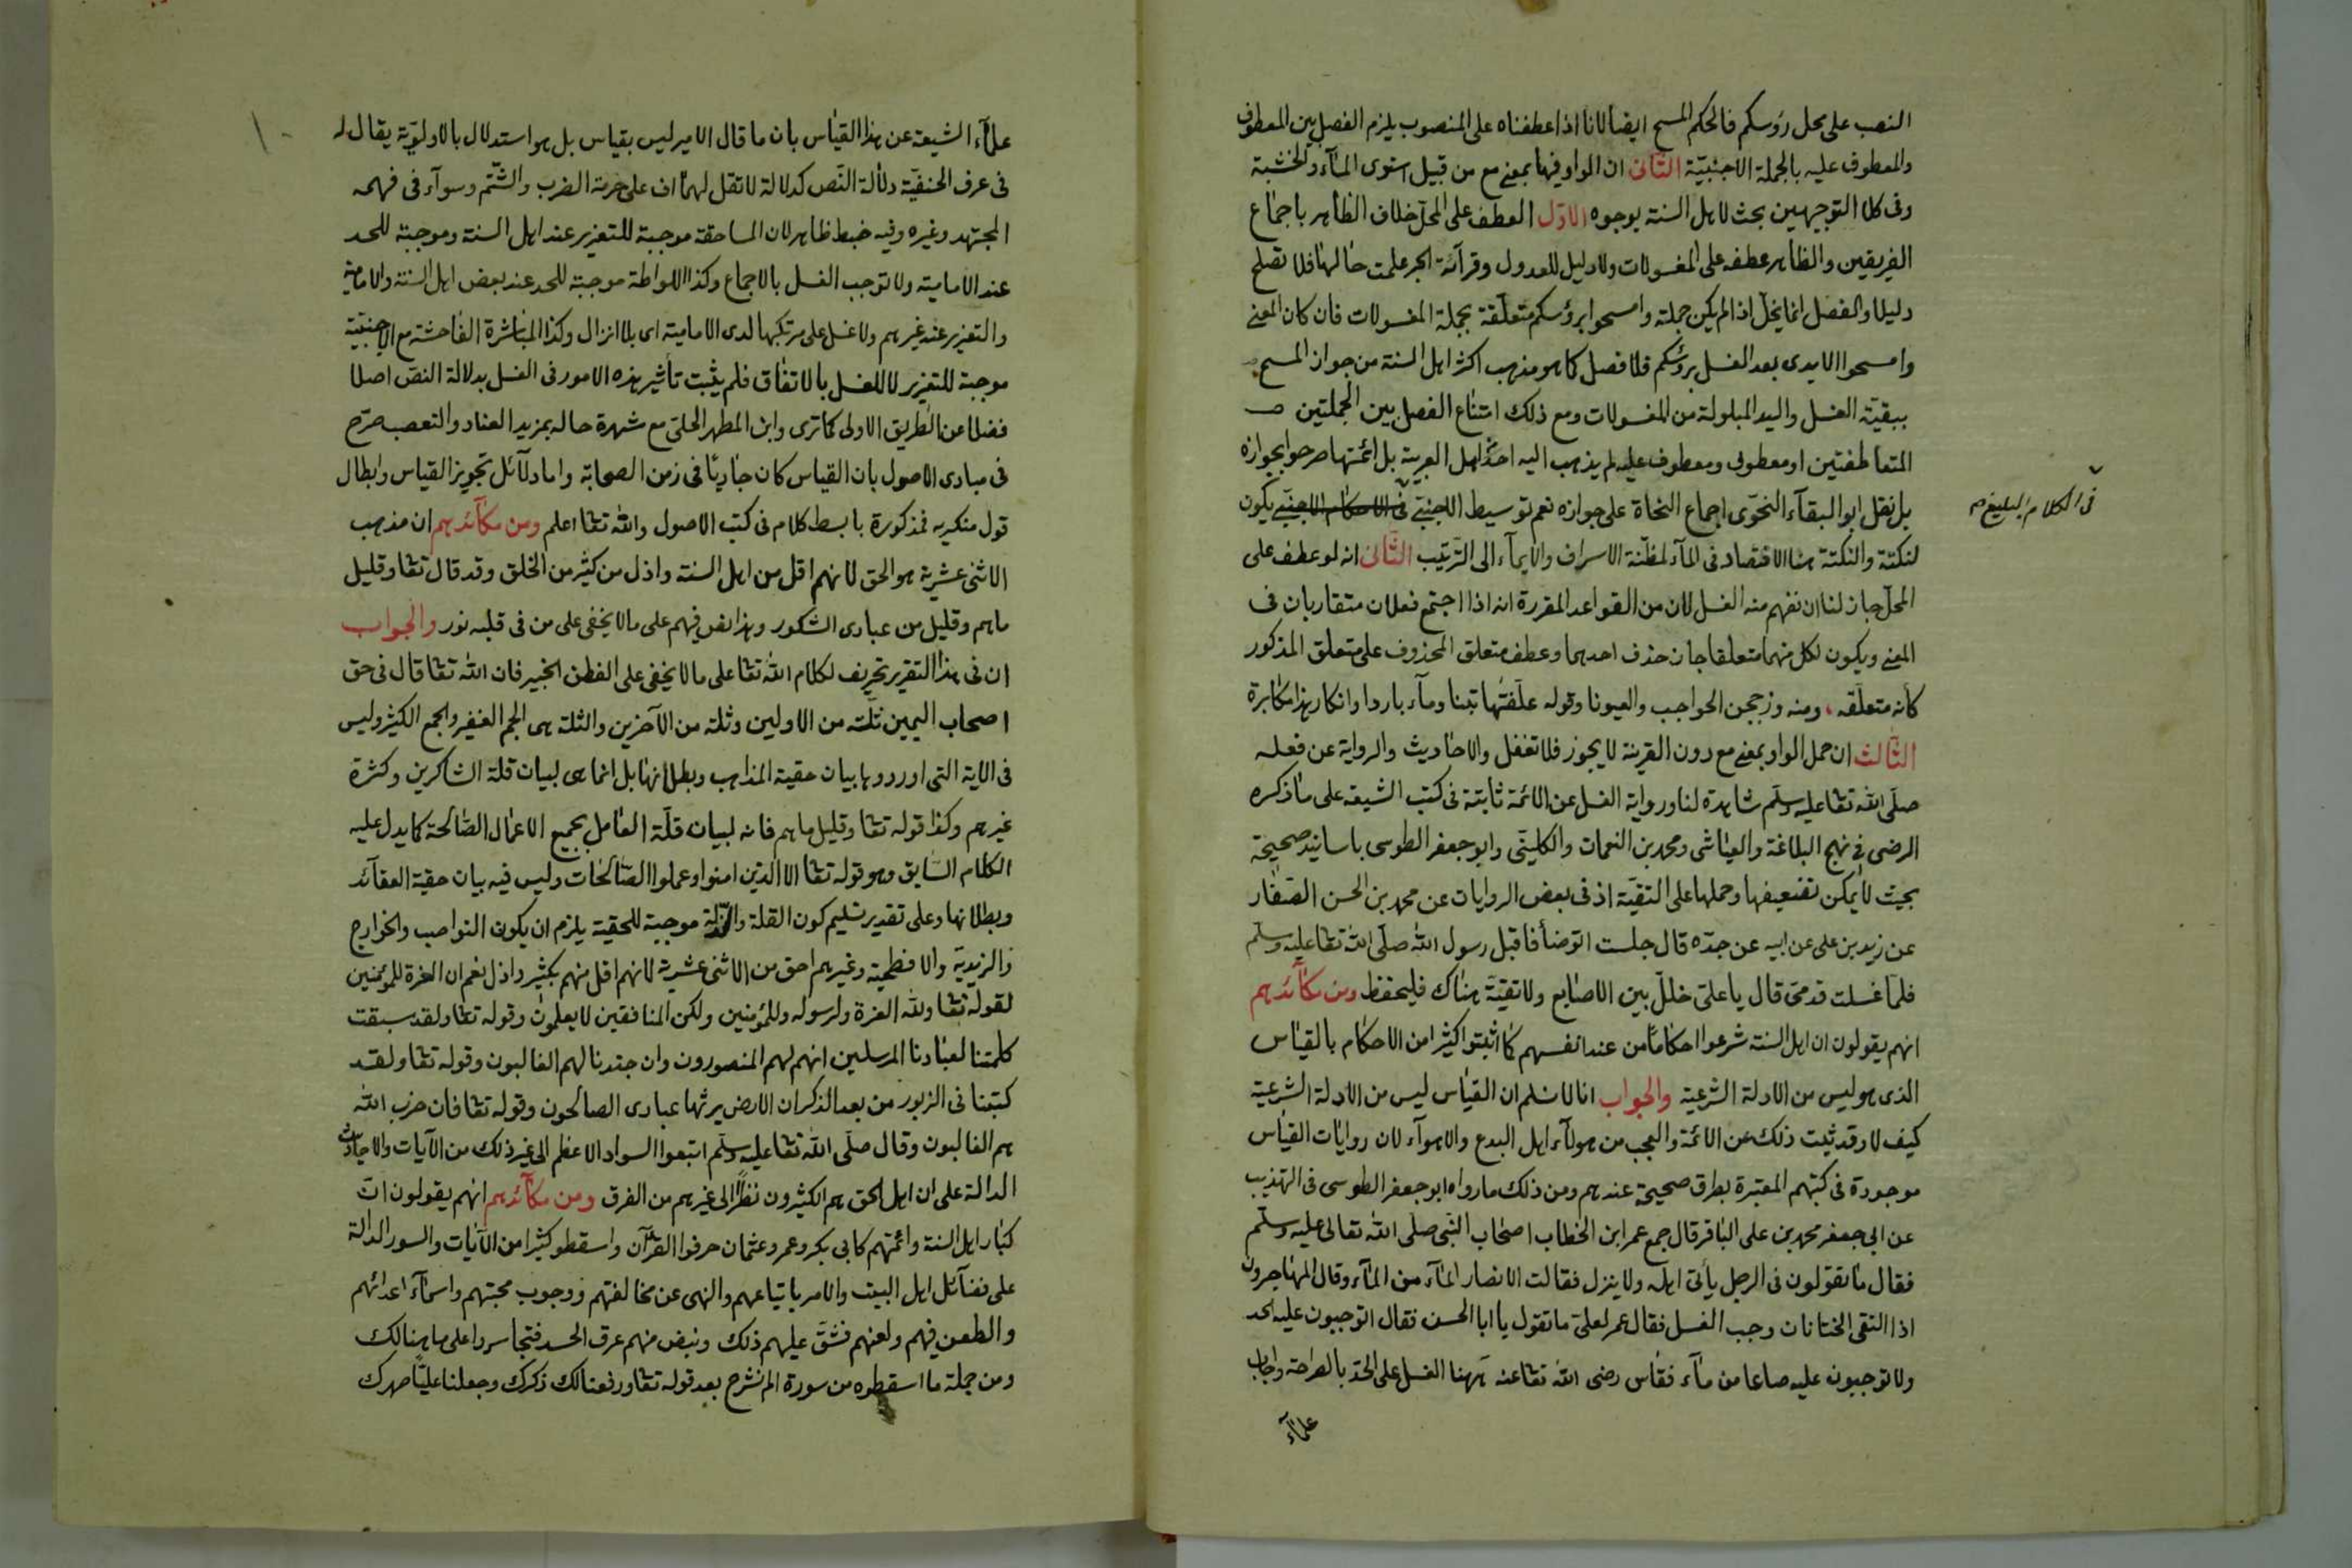 النصب على محل رؤسكم فالحكم المسح ايضا لانا اذا عطفناه على المنصوب يلزم الفصل بين المعطوف
والمعطوف عليه بالجملة الاجنبيّة الثّانى ان الواو فيها بمعنى مع من قبيل استوى المآء والخشبة
وفى كلا التوجيهين بحث لاهل السنة بوجوه الاوّل العطف على المحلّ خلاف الظاهر باجماع
الفريقين والظاهر عطفه على المغسولات ولا دليل للعدول وقرآئة الجر علمت حالها فلا تصلح
دليلا والفصل انما يخلّ اذا لم يكن جملة وامسحوا برؤسكم متعلّقة بجملة المغسولات فان كان المعنى
وامسحوا الايدى بعد الغسل برؤسكم فلا فصل كما هو مذهب اكثر اهل السنة من جواز المسح
ببقيّة الغسل واليد المبلولة من المغسولات ومع ذلك امتناع الفصل بين الجملتين
المتعاطفتين او معطوف ومعطوف عليه لم يذهب اليه احد من اهل العربية بل ائمتها صرحوا بجوازه
بل نقل ابو البقآء النحوى اجماع النحاة على جوازه نعم توسيط الاجنبّى فى الاحكام الاجنبّى يكون
فى الكلام البليغ
لنكتة والنكتة هنا الاقتصاد فى المآء لمظنّة الاسراف والايمآء الى الترتيب الثّانى انه لو عطف على
المحلّ جاز لنا ان نفهم منه الغسل لان من القواعد المقررة انه اذا اجتمع فعلان متقاربان فى
المعنى ويكون لكل منهما متعلقا جاز حذف احدهما وعطف متعلق المحذوف على متعلق المذكور
كأنه متعلّقه ومنه وزججن الحواجب والعيونا وقوله علّفتها تبنا ومآء باردا وانكار هذا مكابرة
الثّالث ان حمل الواو بمعنى مع دون القرينة لا يجوز فلا تغفل والاحاديث والرواية عن فعله
صلّى الله تعا عليه وسلّم شاهدة لنا ورواية الغسل عن الائمة ثابتة فى كتب الشيعة على ما ذكره
الرضى فى نهج البلاغة والعياشى ومحمد بن النعمان والكلينى وابو جعفر الطوسى باسانيد صحيحة
بحيث لا يمكن تضعيفها وحملها على التقيّة اذ فى بعض الروايات عن محمد بن الحسن الصفّار
عن زيد بن على عن ابيه عن جدّه قال جلست اتوضأ فاقبل رسول الله صلّى الله تعا عليه وسلّم
فلمّا غسلت قدمىّ قال يا علىّ خلل بين الاصابع ولا تقيّة هناك فليحفظ ومن مكآئدهم
انهم يقولون ان اهل السنة شرعوا احكاماً من عند انفسهم كما اثبتوا كثيرا من الاحكام بالقياس
الذى هو ليس من الادلة الشرعية والجواب انا لا نسلم ان القياس ليس من الادلة الشرعية
كيف لا وقد ثبت ذلك عن الائمة والعجب من هولآء اهل البدع والاهوآء لان روايات القياس
موجودة فى كتبهم المعتبرة بطرق صحيحة عندهم ومن ذلك ما رواه ابو جعفر الطوسى فى التهذيب
عن ابى جعفر محمد بن على الباقر قال جمع عمر ابن الخطاب اصحاب النّبى صلّى الله تعالى عليه وسلّم
فقال ما تقولون فى الرجل يأتى اهله ولا ينزل فقالت الانصار المآء من المآء وقال المهاجرون
اذا التقى الختانان وجب الغسل فقال عمر لعلىّ ما تقول يا ابا الحسن فقال اتوجبون عليه الحد
ولا توجبون عليه صاعا من مآء فقاس رضى الله تعا عنه ههنا الغسل على الحدّ بالصراحة واجاب
علمآء
علمآء الشيعة عن هذا القياس بان ما قال الامير ليس بقياس بل هو استدلال بالاولويّة يقال له
فى عرف الحنفيّة دلالة النّص كدلالة لا تقل لهما اف على حرمة الضرب والشّتم وسوآء فى فهمه
المجتهد وغيره وفيه خبط ظاهر لان المساحقة موجبة للتعزير عند اهل السنة وموجبة للحد
عند الامامية ولا توجب الغسل بالاجماع وكذا اللواطة موجبة للحد عند بعض اهل السنة والامامية
والتعزير عند غيرهم ولا غسل على مرتكبها لدى الامامية اى بلا انزال وكذا المباشرة الفاحشة مع الاجنبيّة
موجبة للتعزير لا للغسل بالاتفاق فلم يثبت تأثير هذه الامور فى الغسل بدلالة النصّ اصلا
فضلا عن الطريق الاولى كما ترى وابن المطهر الحلّى مع شهرة حاله بمزيد العناد والتعصب صرّح
فى مبادى الاصول بان القياس كان جاريًا فى زمن الصحابة واما دلآئل تجويز القياس وابطال
قول منكريه فمذكورة بابسط كلام فى كتب الاصول والله تعا اعلم ومن مكآئدهم ان مذهب
الاثنى عشرية هو الحق لانهم اقل من اهل السنة واذل من كثير من الخلق وقد قال تعا وقليل
ما هم وقليل من عبادى الشكور وهذا نص فيهم على ما لا يخفى على من فى قلبه نور والجواب
ان فى هذا التقرير تحريف لكلام الله تعا على ما لا يخفى على الفطن الخبير فان الله تعا قال فى حق
اصحاب اليمين ثلّة من الاولين وثلة من الآخرين والثلة هى الجم الغفير والجمع الكثير وليس
فى الاية التى اوردوها بيان حقية المذاهب وبطلانها بل انما هى لبيان قلة الشاكرين وكثرة
غيرهم وكذا قوله تعا وقليل ما هم فانه لبيان قلّة العامل بجميع الاعمال الصّالحة كما يدل عليه
الكلام السّابق وهو قوله تعا الا الذين امنوا وعملوا الصّالحات وليس فيه بيان حقية العقآئد
وبطلانها وعلى تقدير تسليم كون القلة والذّلة موجبة للحقية يلزم ان يكون النواصب والخوارج
والزيديّة والافطحية وغيرهم احق من الاثنى عشرية لانهم اقل منهم بكثير واذل نعم ان العزة للمؤمنين
لقوله تعا ولله العزة ولرسوله وللمؤمنين ولكن المنافقين لا يعلمون وقوله تعا ولقد سبقت
كلمتنا لعبادنا المرسلين انهم لهم المنصورون وان جندنا لهم الغالبون وقوله تعا ولقد
كتبنا فى الزبور من بعد الذكر ان الارض يرثها عبادى الصالحون وقوله تعا فان حزب الله
هم الغالبون وقال صلّى الله تعا عليه وسلّم اتبعوا السواد الاعظم الى غير ذلك من الآيات والاحاديث
الدالة على ان اهل الحق هم الكثيرون نظرًا الى غيرهم من الفرق ومن مكآئدهم انهم يقولون انّ
كبار اهل السنة وائمتهم كابى بكر وعمر وعثمان حرفوا القرآن واسقطو كثيرا من الآيات والسور الدالة
على فضآئل اهل البيت والامر باتباعهم والنهى عن مخالفتهم ووجوب محبتهم واسمآء اعدائهم
والطعن فيهم ولعنهم فشقّ عليهم ذلك ونبض منهم عرق الحسد فتجاسروا على ما هنالك
ومن جملة ما اسقطوه من سورة الم نشرح بعد قوله تعا ورفعنا لك ذكرك وجعلنا عليًّا صهرك